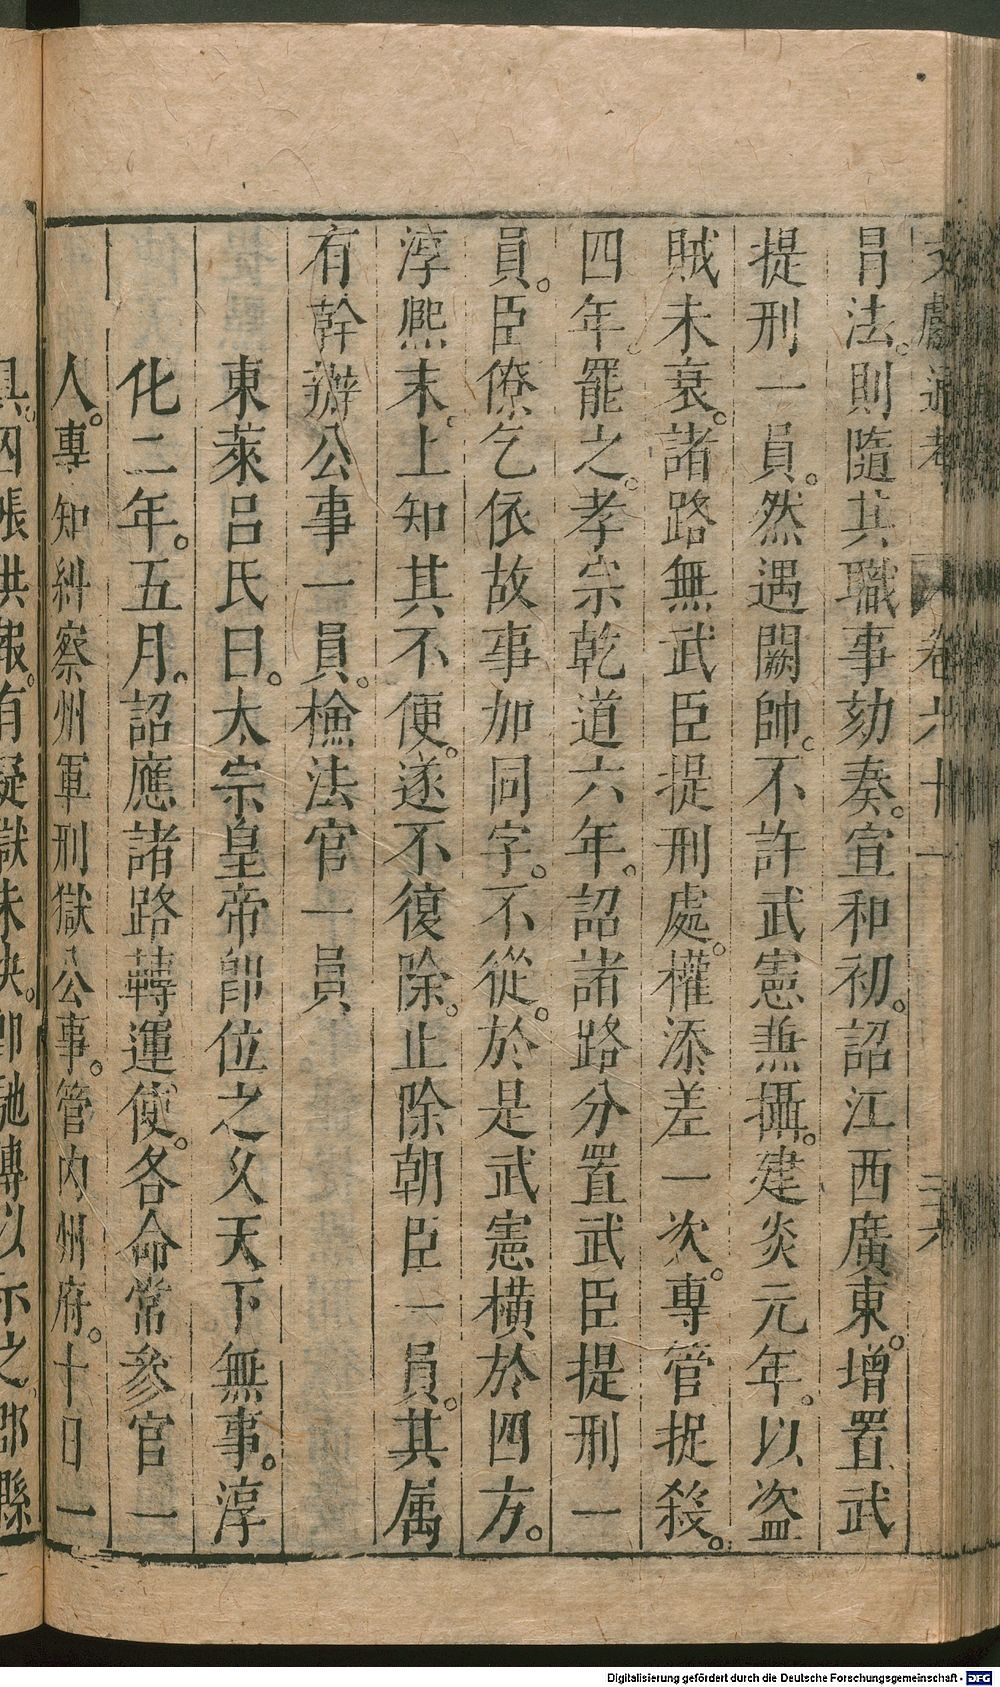 文獻通考 卷六十一 三六
冐法。則隨其職事劾奏。宣和初。詔江西廣東。增置武
提刑一員。然遇闕帥。不許武憲兼攝。建炎元年。以盜
賊未衰。諸路無武臣提刑處。權添差一次。專管捉殺。
四年。罷之。孝宗乾道六年。詔諸路分置武臣提刑一
員。臣僚乞依故事加同字。不從。於是武憲橫於四方。
淳熈末。上知其不便。遂不復除。止除朝臣一員。其属
有幹辦公事一員。檢法官一員
東萊呂氏曰。太宗皇帝卽位之久天下無事。淳
化二年。五月。詔應諸路轉運使。各命常參官一
人。專知糾察州軍刑獄公事。管內州府。十日一
具。囚帳供報。有疑獄未決。卽馳傳以示之。郡縣
Digitalisierung gefördert durch die Deutsche Forschungsgemeinschaft - DFG